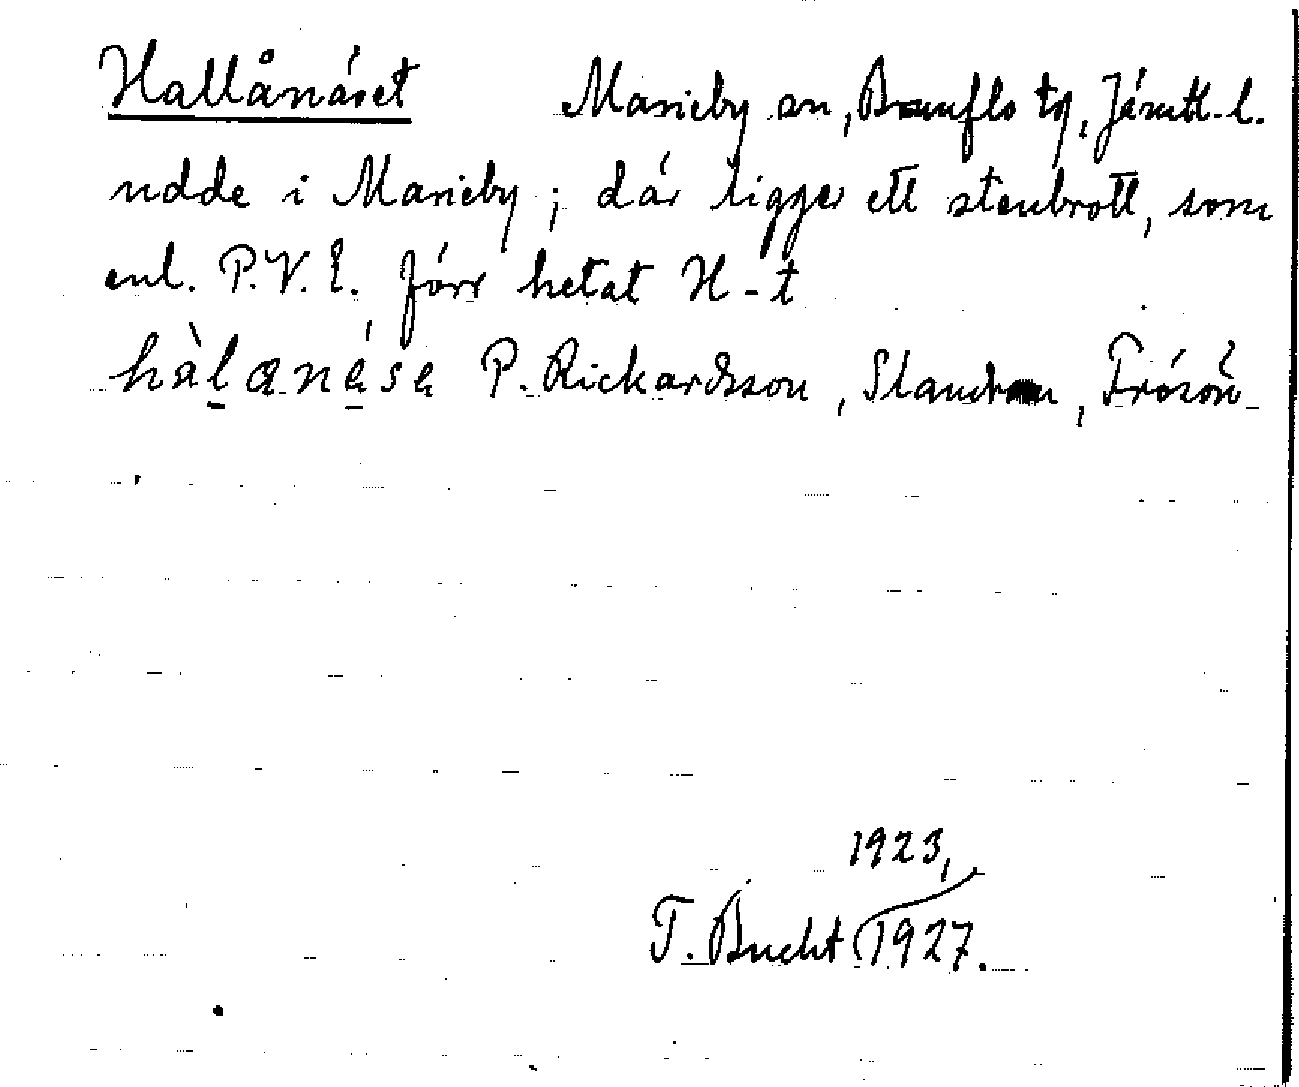 Hallånäset Marieby sn, Brunflo tg, Jämtl. l.
udde i Marieby; där ligger ett stenbrott, som
enl. P.V.E. förr hetat H-t
hàlanése P. Rickardsson, Standran, Frösön
1923,
T. Bucht 1927.